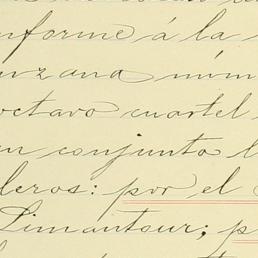 nforme á la
nzana núm
octavo cuartel
n conjunto l
leros: por el
Limantour; p